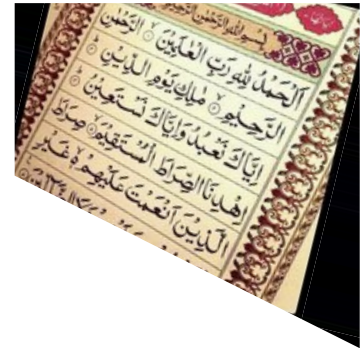 بِسْمِ اللهِ الرَّحْمٰنِ الرَّحِيْمِ
اَلْحَمْدُ لِلّٰهِ رَبِّ الْعٰلَمِيْنَ ۙ الرَّحْمٰنِ
الرَّحِيْمِ ۙ مٰلِكِ يَوْمِ الدِّيْنِ ؕ
اِيَّاكَ نَعْبُدُ وَاِيَّاكَ نَسْتَعِيْنُ ؕ
اِهْدِنَا الصِّرَاطَ الْمُسْتَقِيْمَ ۙ صِرَاطَ
الَّذِيْنَ اَنْعَمْتَ عَلَيْهِمْ ۙ غَيْرِ